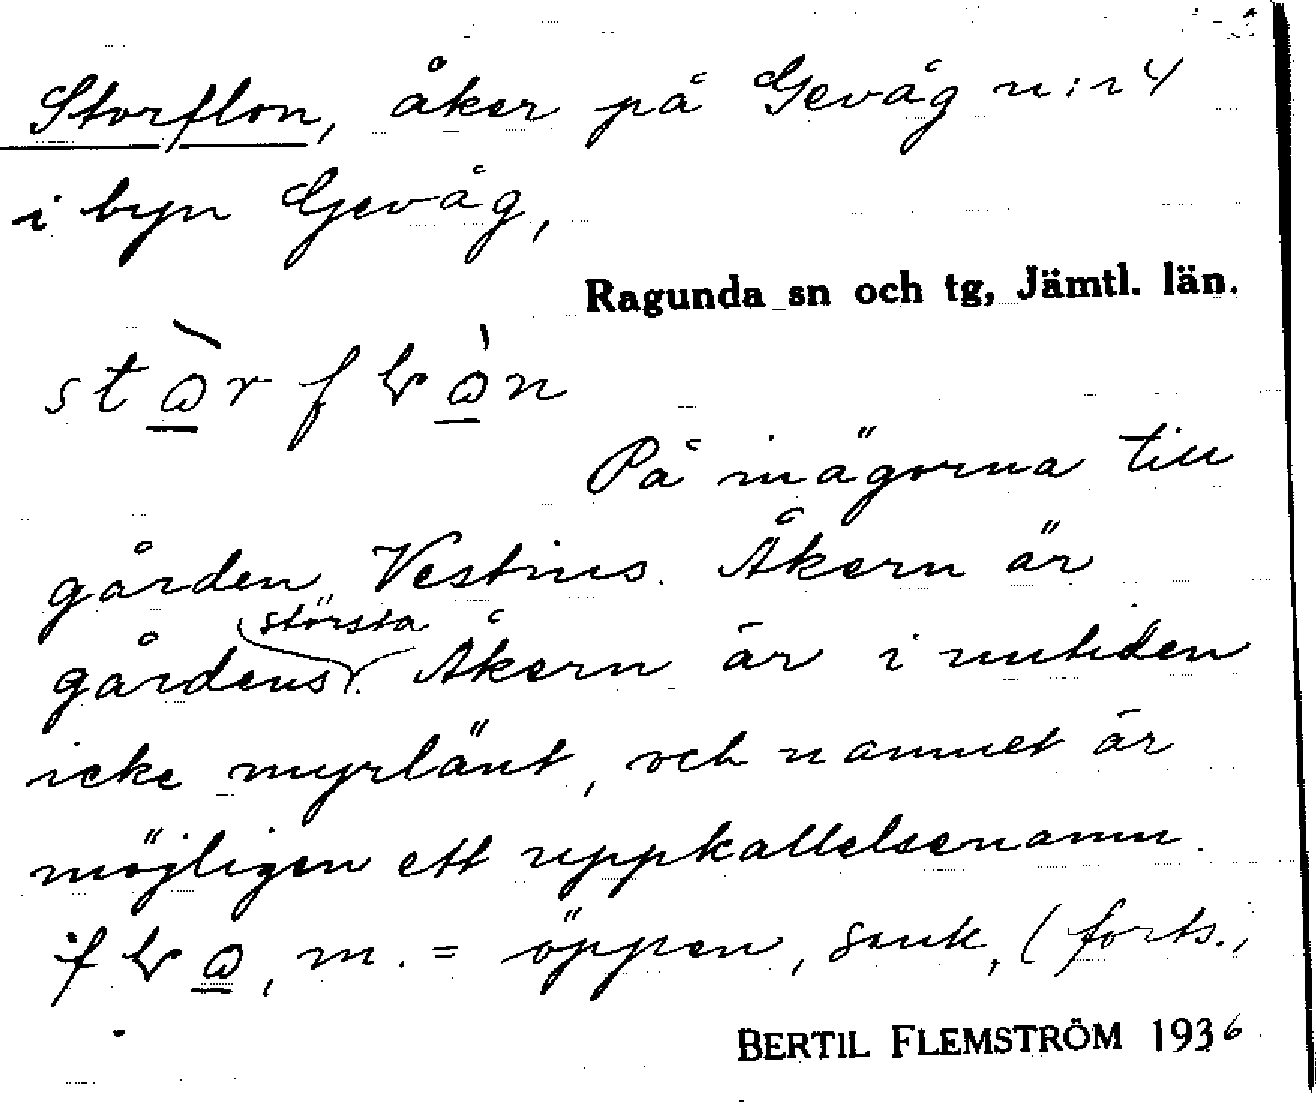 Storflon, åker på Gevåg n:r 4
i byn Gevåg,
Ragunda sn och tg, Jämtl. län.
På mägorna till
gården Vestrins. Åkern är
gårdens största. Åkern är i nutiden
icke myrlänt, och namnet är
möjligen ett uppkallelsenamn.
m. = öppen, sank, (forts.)
BERTIL FLEMSTRÖM 1936